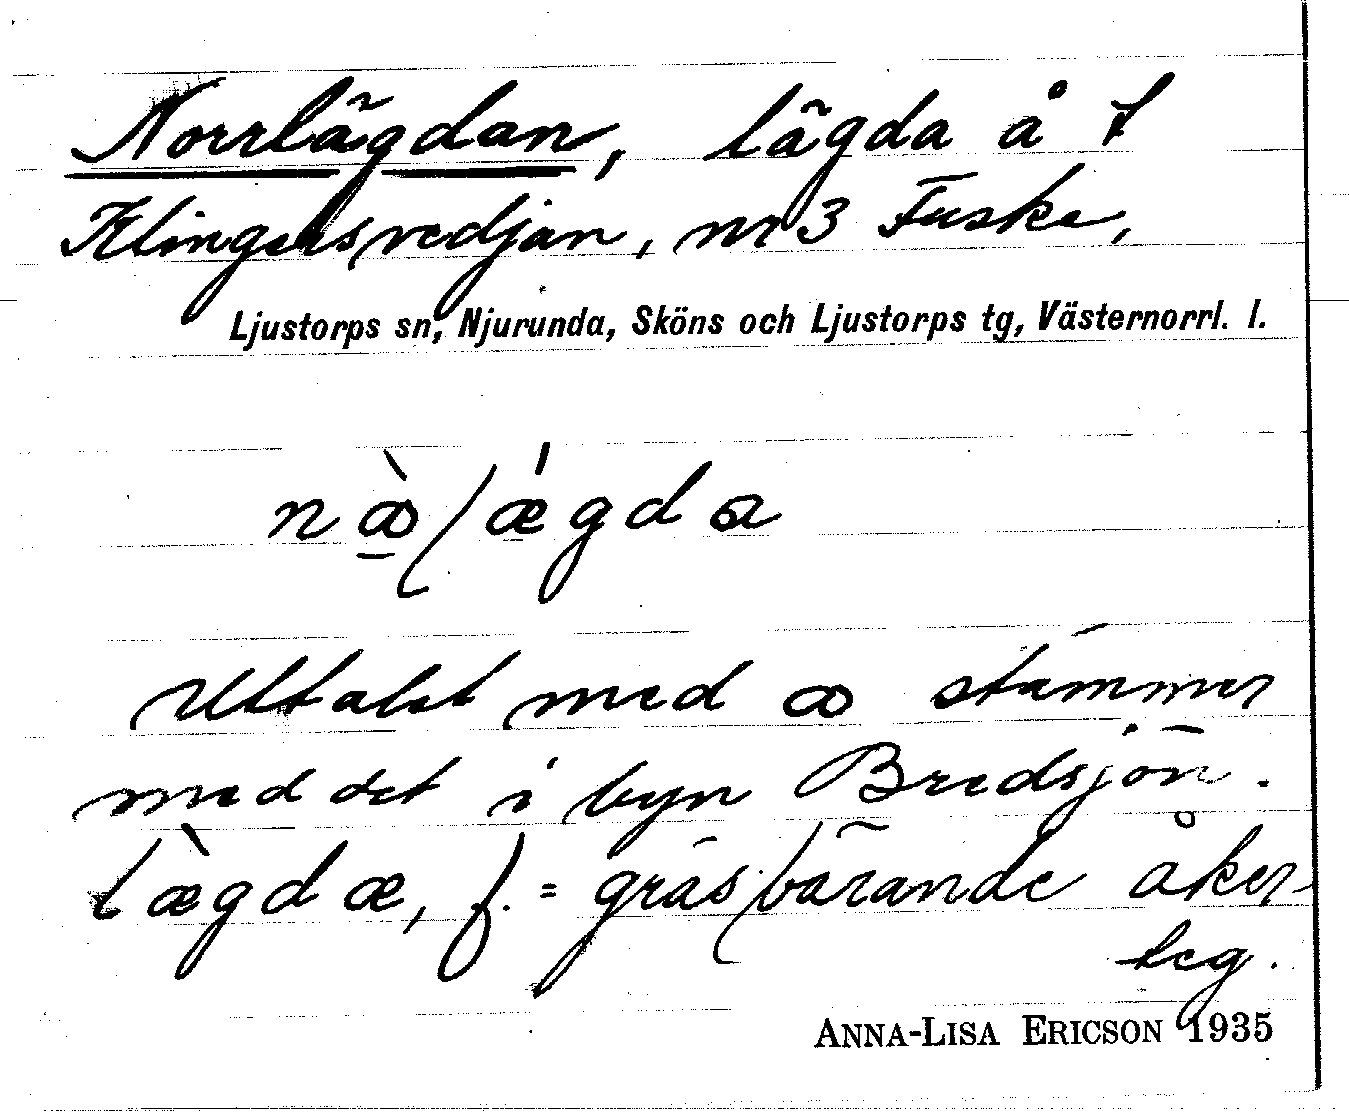 Norrlägdan, lägda å f
Klingersvedjan, nr 3 Fuske,
Ljustorps sn, Njurunda, Sköns och Ljustorps tg, Västernorrl. l.
Uttalet med ꝏ stämmer
med det i byn Bredsjön.
lὰgdæ, f. = gräsbärande åker-
teg.
ANNA-LISA ERICSON 1935